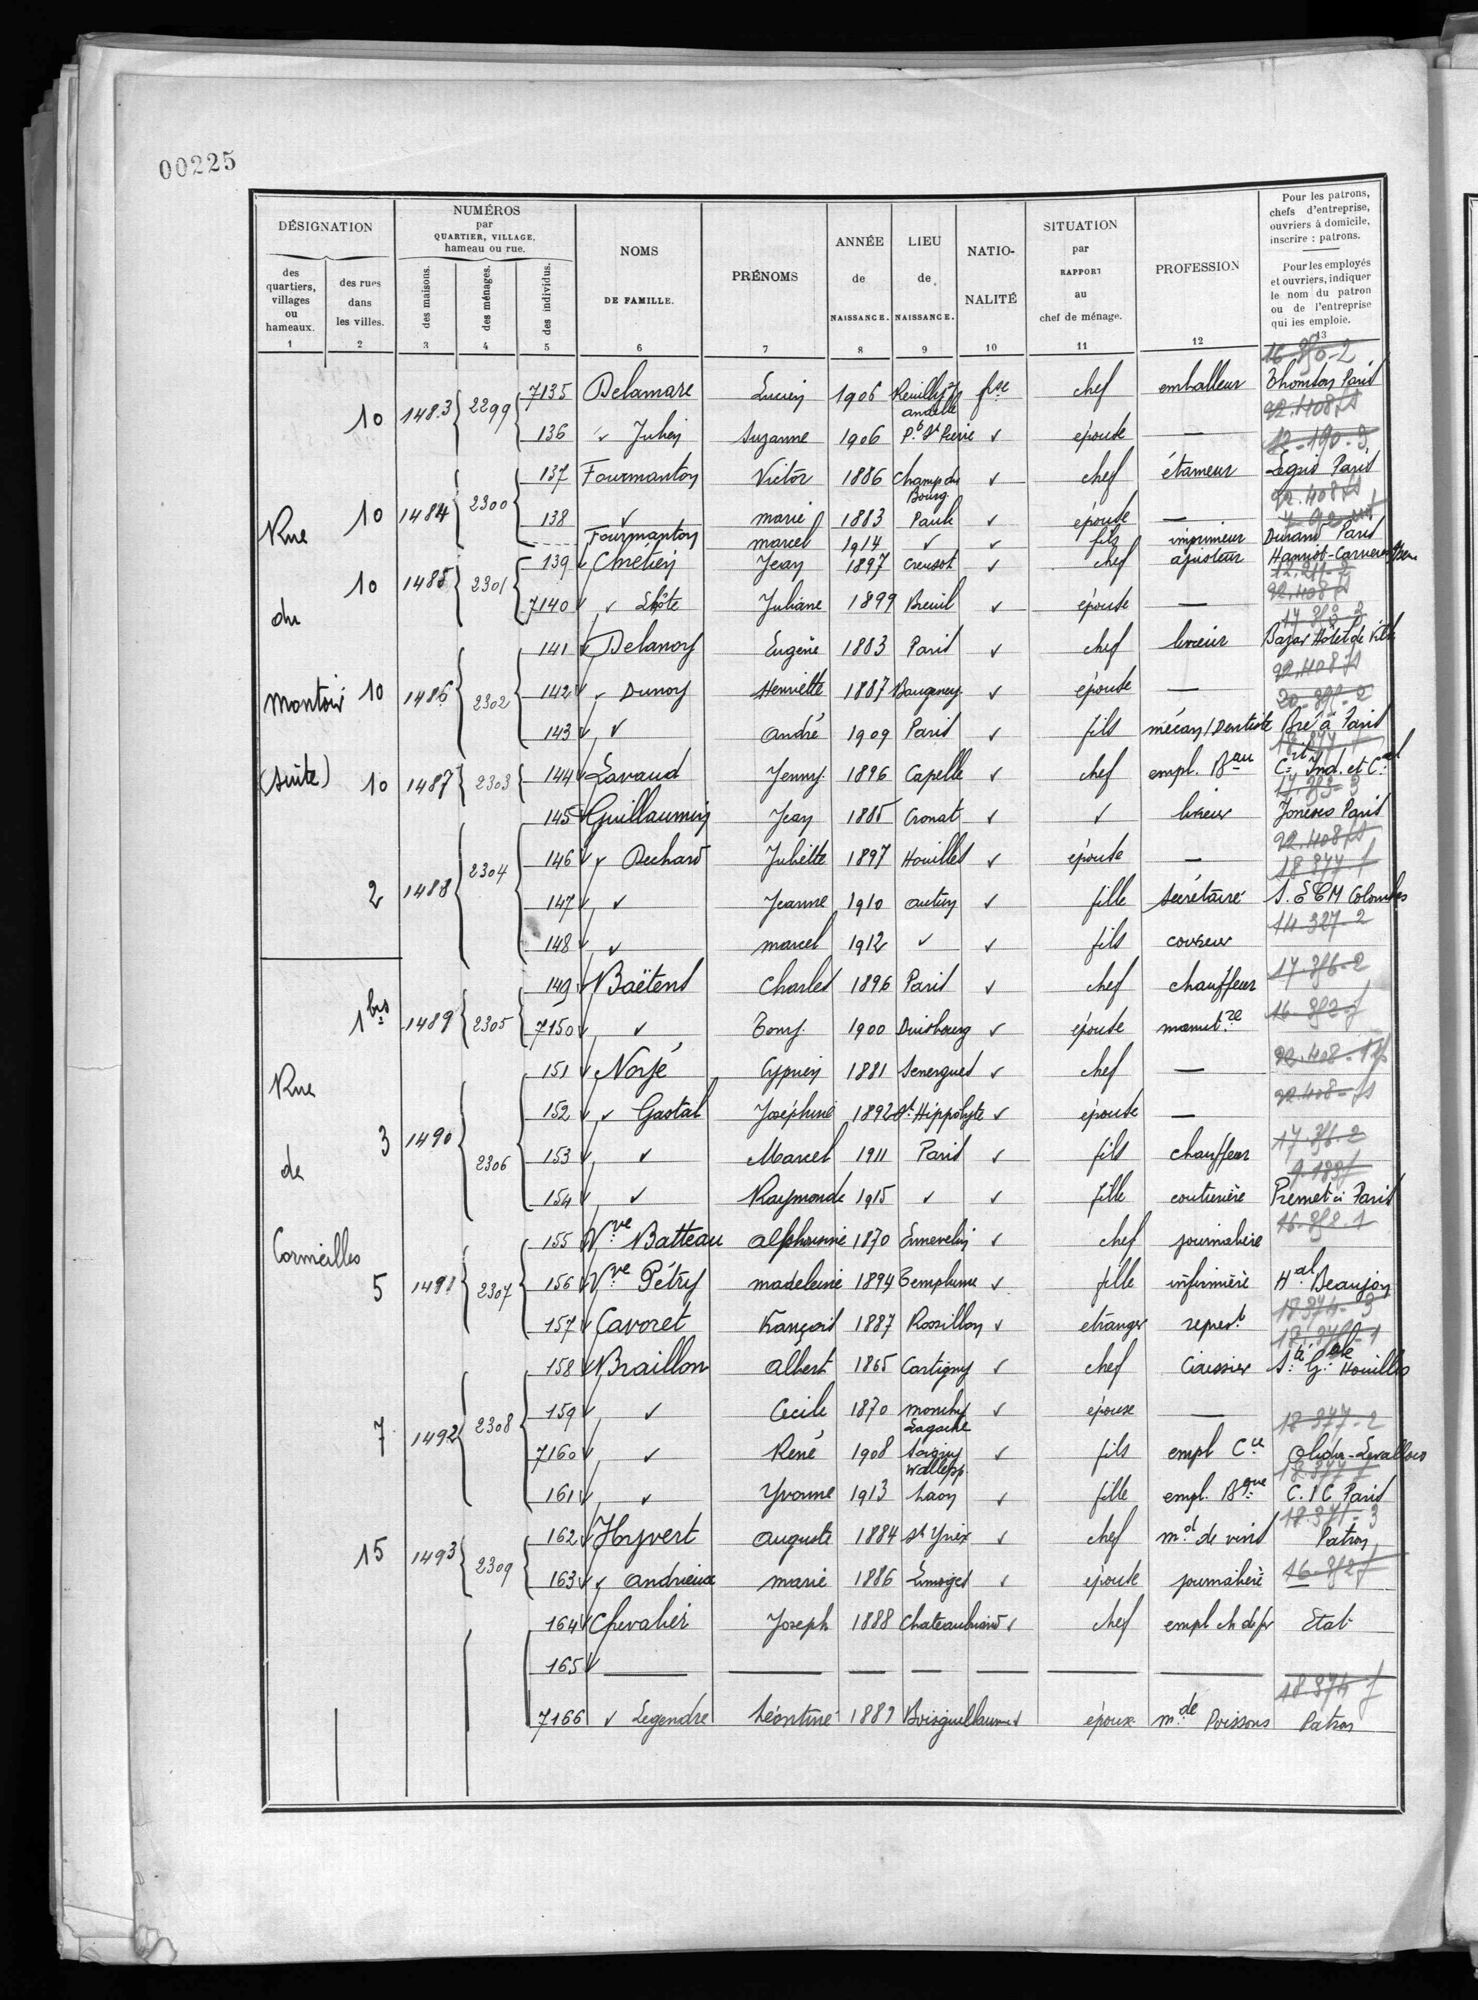 00225
DÉSIGNATION
des quartiers, villages ou hameaux. 1
des rues dans les villes. 2
NUMÉROS par QUARTIER, VILLAGE, hameau ou rue.
des maisons. 3
des ménages. 4
des individus. 5
NOMS DE FAMILLE. 6
PRÉNOMS 7
ANNÉE de NAISSANCE. 8
LIEU de NAISSANCE. 9
NATIO- NALITÉ 10
SITUATION par RAPPORT au chef de ménage. 11
PROFESSION 12
Pour les patrons, chefs d'entreprise, ouvriers à domicile, inscrire : patrons.
Pour les employés et ouvriers, indiquer le nom du patron ou de l'entreprise qui les emploie. 13
Rue du Montoir (suite)
10 1483 2299 7135 Delamare Lucien 1906 Reuilly andelle fse chef emballeur Thomton Paris
136 " Julien Suzanne 1906 Pt St Pierre " épouse —
10 1484 2300 137 Fourmanton Victor 1886 Champ du Bourg " chef étameur Legris Paris
138 " marie 1883 " épouse —
Fourmanton marcel 1914 " " fils imprimeur Durand Paris
10 1485 2301 139 Chrétien Jean 1897 Creusot " chef ajusteur Hanriot-Carrieres
7140 " Lhôte Juliane 1899 Breuil " épouse —
10 1486 2302 141 Delanoy Eugène 1883 Paris " chef livreur Bazar Hôtel de Ville
142 " Dunoy Henriette 1887 Baugency " épouse —
143 " André 1909 Paris " fils mécan/Dentiste Bré à Paris
10 1487 2303 144 Lavaud Jenny 1896 Capelle " chef empl. Bau Cit Ind. et Cal
2 1488 2304 145 Guillaumin Jean 1885 Cronat " " livreur Paris
146 " Dechard Juliette 1897 Houilles " épouse —
147 " Jeanne 1910 autun " fille secrétaire Colombes
148 " marcel 1912 " " fils couvreur
Rue de Cormeilles
1bis 1489 2305 149 Baëtens Charles 1896 Paris " chef chauffeur
7150 " Tony 1900 Duisbourg " épouse manut.re
3 1490 2306 151 Norjé Cyprien 1881 Senergues " chef —
152 " Gastal Joséphine 1892 St Hippolyte " épouse —
153 " Marcel 1911 Paris " fils chauffeur
154 " Raymonde 1915 " " fille couturière Premet à Paris
5 1491 2307 155 Vve Batteau alphonsine 1870 Ennevelin " chef journalière
156 Vve Pétry madeleine 1894 Templeuve " fille infirmière Hal Beaujon
157 Cavoret François 1887 Rossillon " etranger repést
7 1492 2308 158 Braillon albert 1865 Cartigny " chef Caissier Sté Gale Houilles
159 " Cecile 1870 monchy Lagache " épouse —
7160 " René 1908 " fils empl Cce Olida-Levallois
161 " Yvonne 1913 Laon " fille empl. Bque C.I.C Paris
15 1493 2309 162 Hyvert auguste 1884 St Yrieix " chef md de vins Patron
163 " andrieux marie 1886 Limoges " épouse journalière —
164 Chevalier Joseph 1888 Chateaubriand " chef empl ch de fr Etat
165 — — — — — — — —
7166 " Legendre Léontine 1889 Boisguillaume " épouse mde Poissons Patron